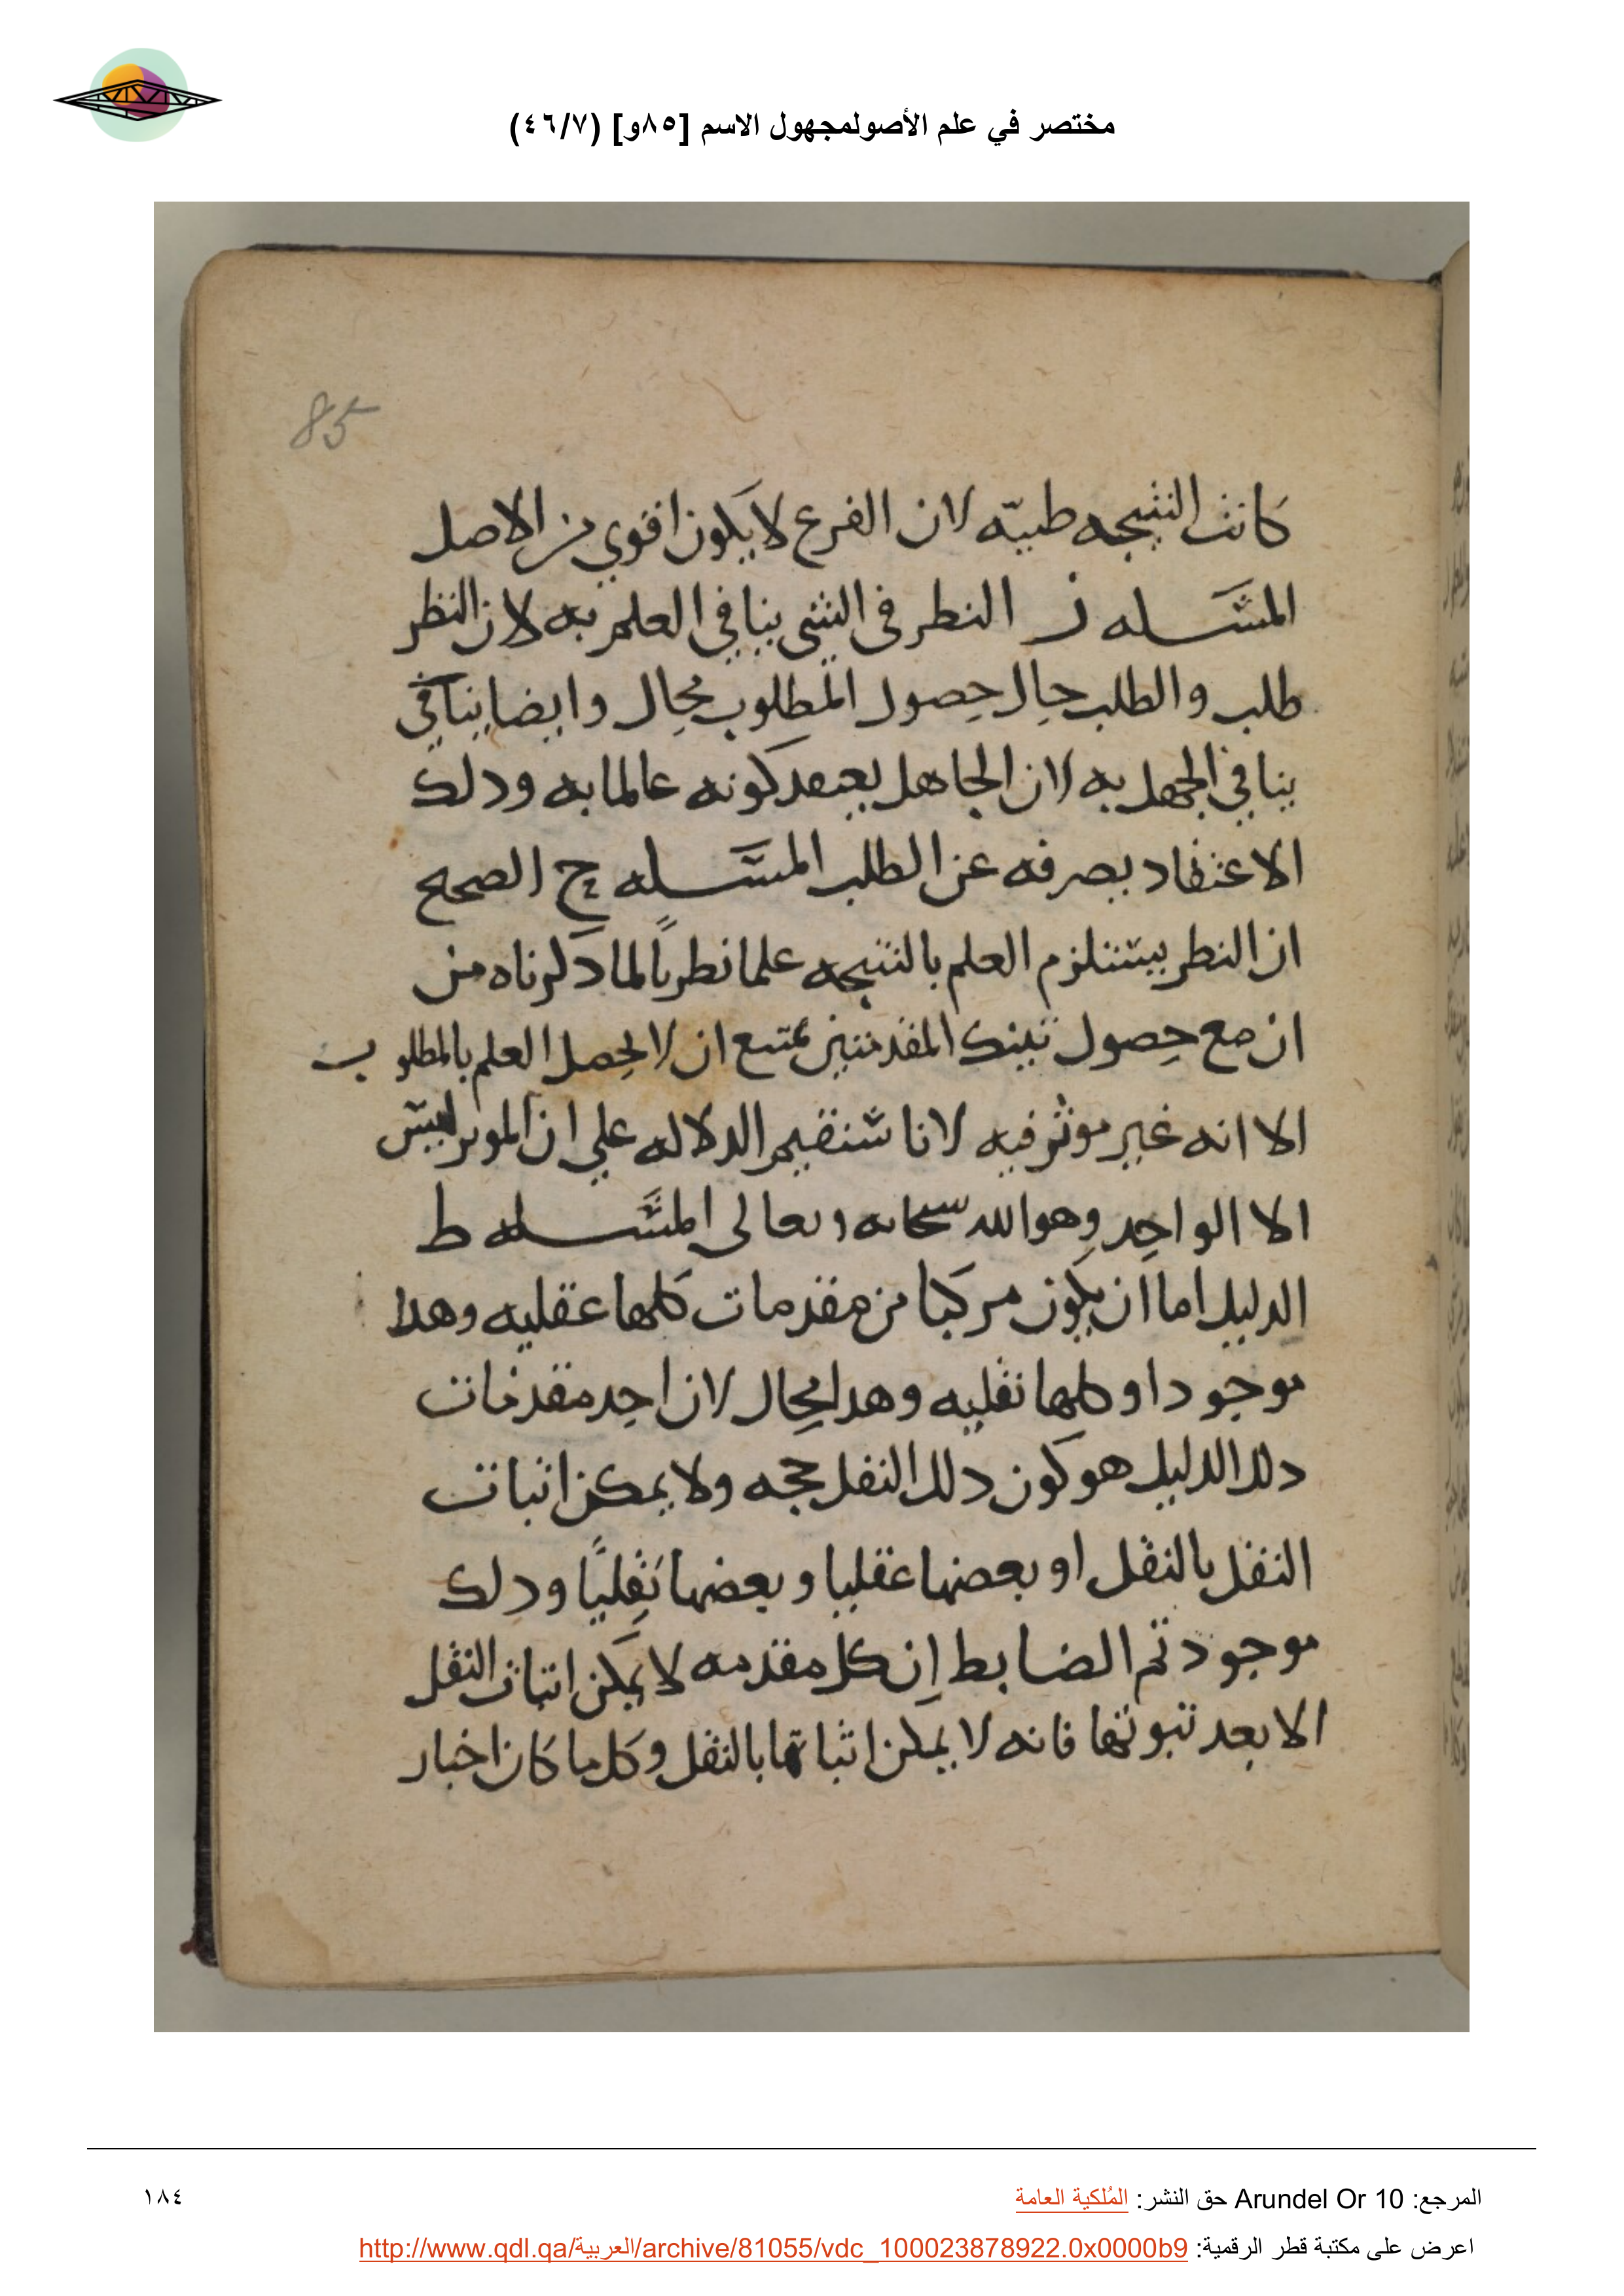 مختصر في علم الأصولمجهول الاسم [٨٥و] (٤٦/٧)
85
كانت النتيجه طنيّه لان الفرع لا يكون اقوي من الاصل
المسـله ز النطر فى الشى ينافي العلم به لان النظر
طلب والطلب حال حصول المطلوب محال وايضا ينافي
ينافي الجهل به لان الجاهل يعتقد كونه عالما به ودلك
الاعتقاد يصرفه عن الطلب المسـله ح الصحيح
ان النطر يستلزم العلم بالنتيجه علما نطرياً لما دكرناه من
ان مع حصول تينك المقدمتين يمتنع ان لا يحصل العلم بالمطلوب
الا انه غير موثر فيه لانا سنقيم الدلاله علي ان الموثر ليس
الا الواحد وهو الله سبحانه وتعالى المسـله ط
الدليل اما ان يكون مركبا من مقدمات كلها عقليه وهدا
موجود او كلها نقليه وهدا محال لان احد مقدمات
دلك الدليل هو كون دلك النقل حجه ولا يمكن اتبات
النقل بالنقل او بعضها عقليا وبعضها نقليًا ودلك
موجود تم الضابط ان كل مقدمه لا يمكن اتبات النقل
الا بعد تبوتها فانه لا يمكن اثباتها بالنقل وكل ما كان اخبار
المرجع: Arundel Or 10 حق النشر: المُلكية العامة
١٨٤
اعرض على مكتبة قطر الرقمية: http://www.qdl.qa/العربية/archive/81055/vdc_100023878922.0x0000b9